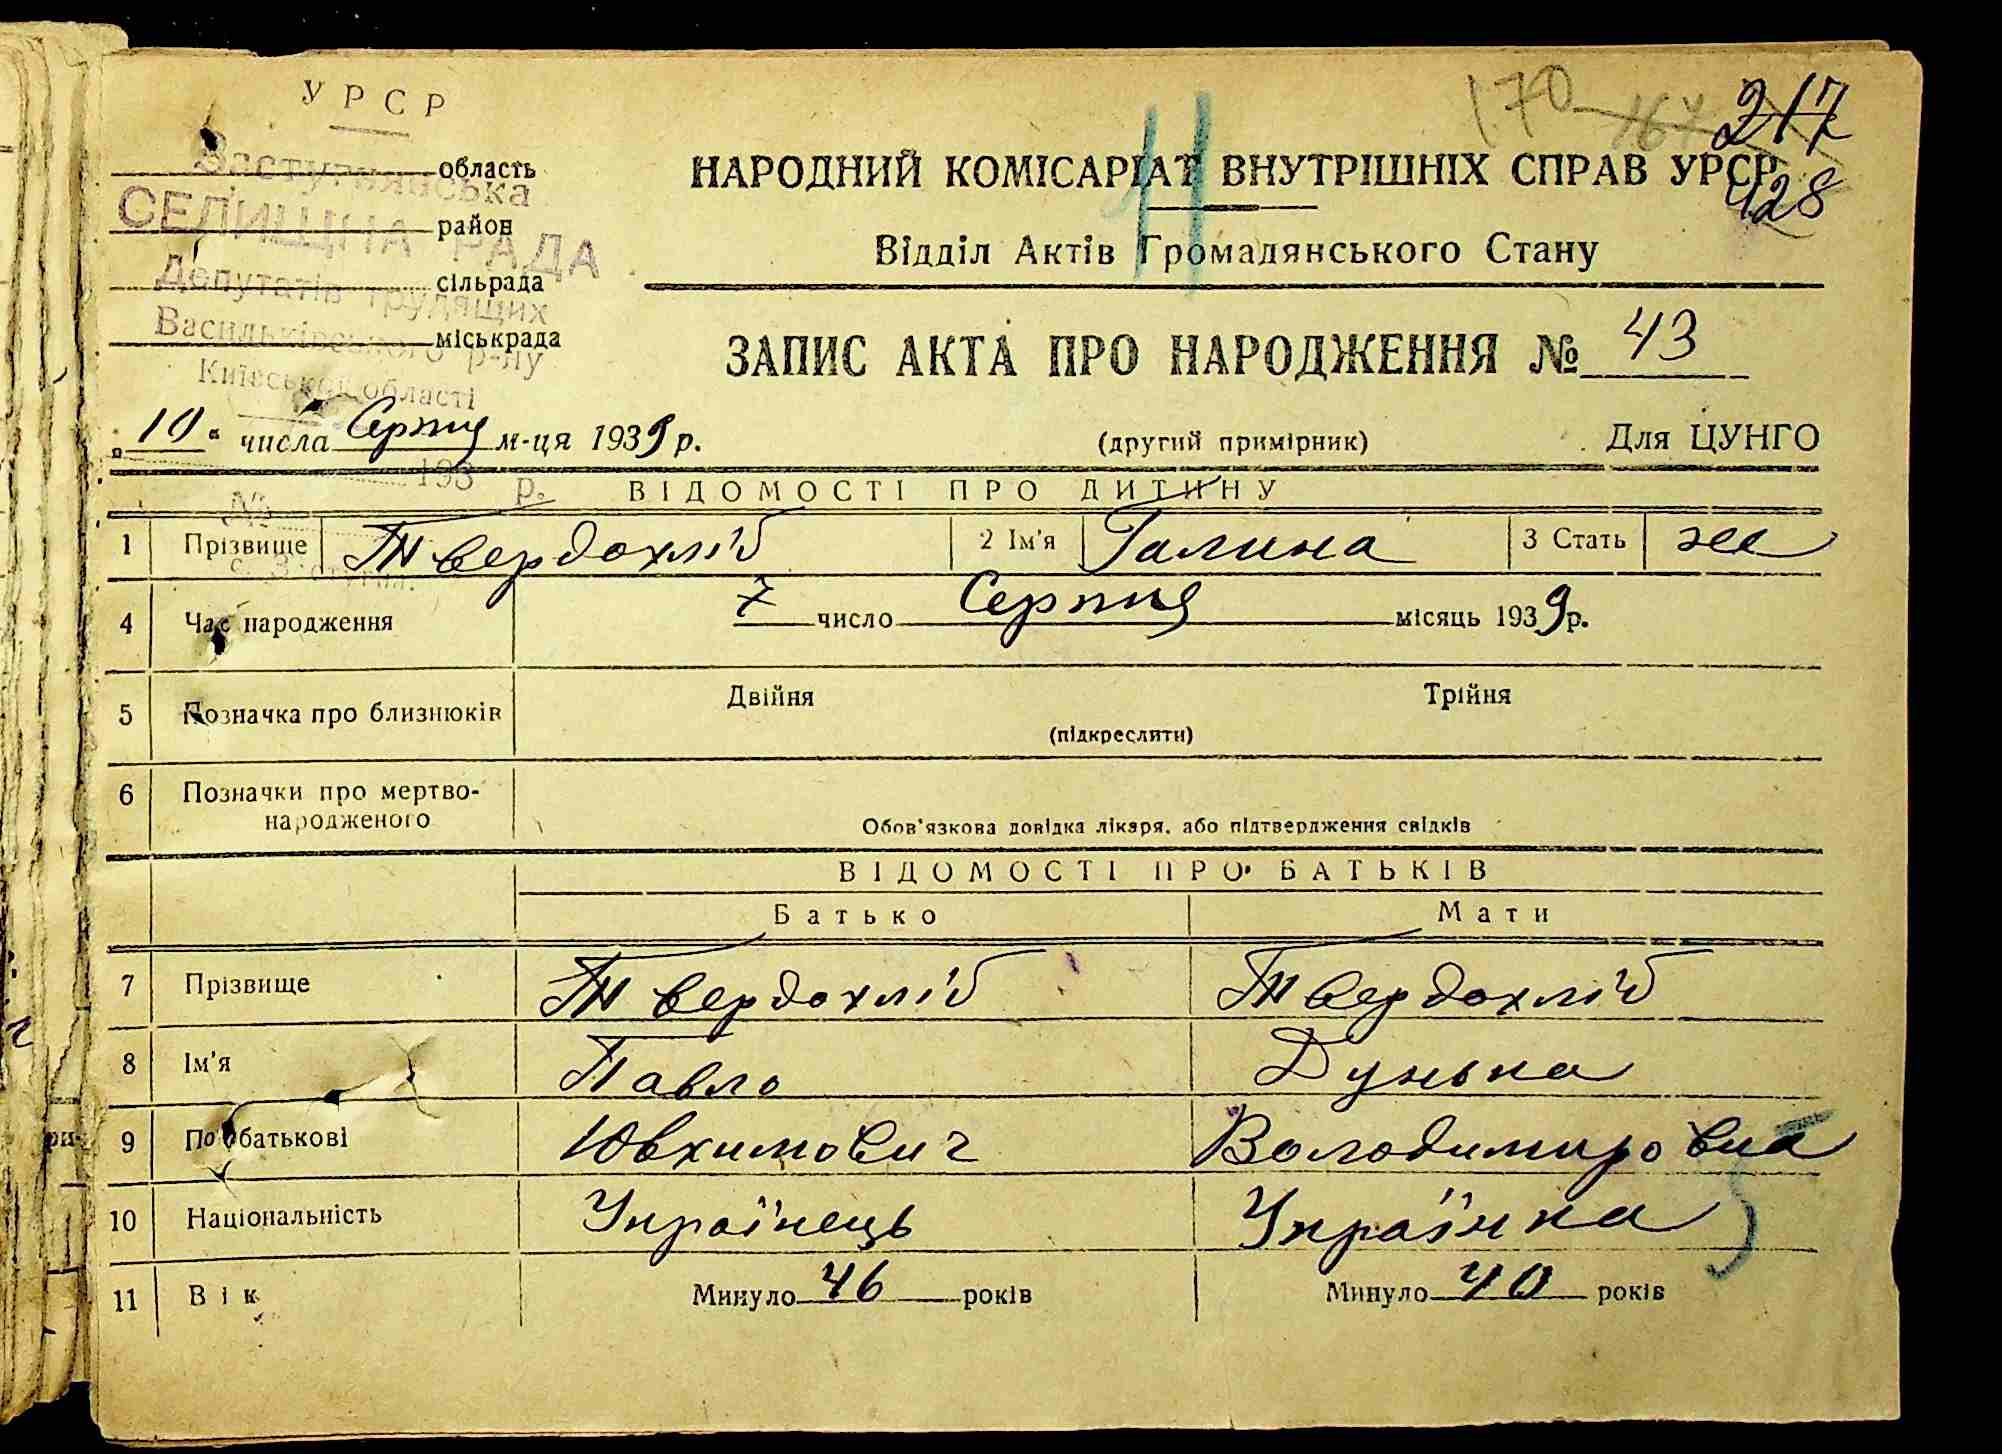 170 167 217
428
УРСР
область
район
сільрада
міськрада
Заступнянська
СЕЛИЩНА РАДА
Депутатів трудящих
Васильківського р-ну
Київської області
193 р.
№
НАРОДНИЙ КОМІСАРІАТ ВНУТРІШНІХ СПРАВ УРСР
Відділ Актів Громадянського Стану
ЗАПИС АКТА ПРО НАРОДЖЕННЯ № 43
„10“ числа Серпня м-ця 1939 р.
(другий примірник)
Для ЦУНГО
ВІДОМОСТІ ПРО ДИТИНУ
1 Прізвище Твердохліб 2 Ім'я Галина 3 Стать ж
4 Час народження 7 число Серпня місяць 1939 р.
5 Позначка про близнюків Двійня Трійня
(підкреслити)
6 Позначки про мертво-
народженого
Обов'язкова довідка лікаря, або підтвердження свідків
ВІДОМОСТІ ПРО БАТЬКІВ
Батько Мати
7 Прізвище Твердохліб Твердохліб
8 Ім'я Павло Дунька
9 По батькові Ювхимович Володимировна
10 Національність Українець Українка
11 Вік Минуло 46 років Минуло 40 років